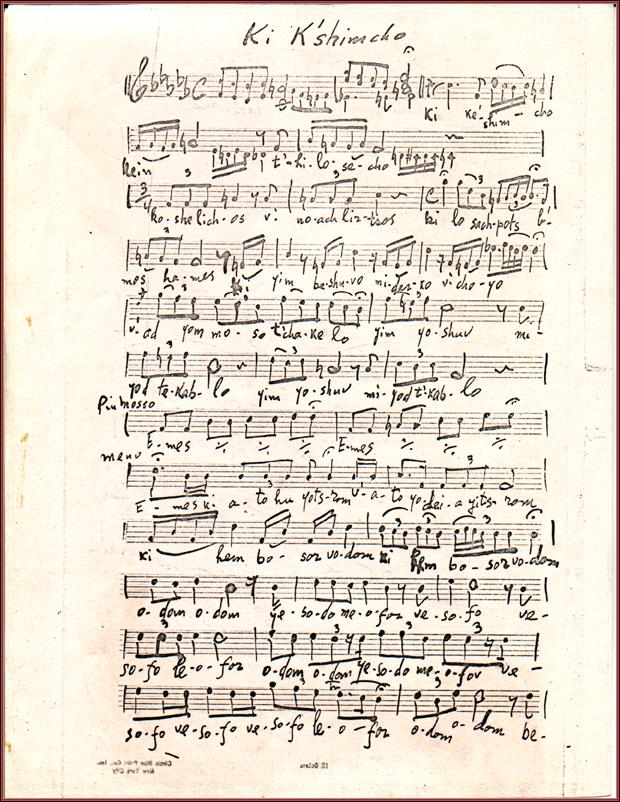 Ki K'shimcho
Ki ke-shim-cho
kein t'-hi-lo-se-cho
ko-she lich-os v' no-ach lir-tzos ki lo sach-pots b'-
mos ha-mes ki yim be-shu-vo mi-dar-ko vi-cho-yo
v'ad yom mo-so t'cha-ke lo yim yo-shuv mi-
yod te-kab-lo yim yo-shuv mi-yod t'-kab-lo
Piu mosso
E-mes E-mes
meno
E-mes ki a-to hu yots-rom v'a-to yo-dei-a yits-rom
ki hem bo-sor vo-dom ki hem bo-sor vo-dom
o-dom o-dom ye-so-do me-o-for ve-so-fo ve-
so-fo le-o-for o-dom o-dom ye-so-do me-o-for ve-
so-fo ve-so-fo ve-so-fo le-o-for o-dom o-dom be-
Circle Blue Print Co., Inc.
New York City